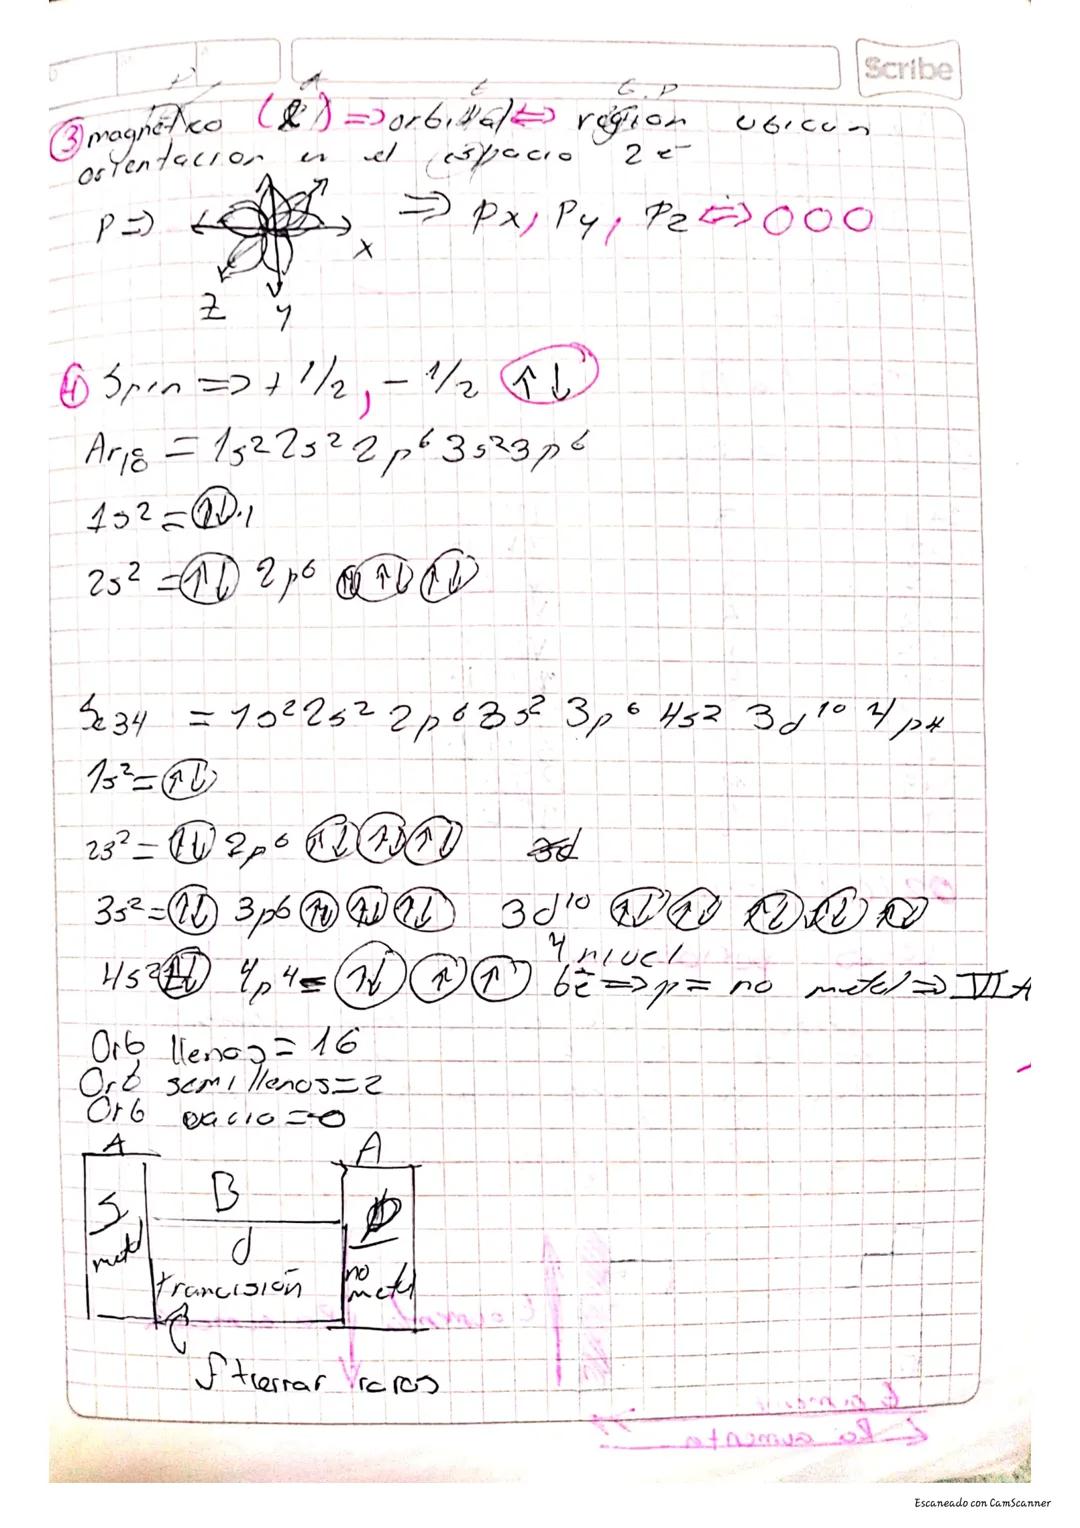 Scribe
③ magnético ( ) => orbital <=> región ubican
orientacion en el espacio 2 e-
p => => Px, Py, Pz <=> OOO
X
Z y
④ Spin => + 1/2, - 1/2 ↑↓
Ar18 = 1s² 2s² 2p⁶ 3s² 3p⁶
1s² = ↑↓
2s² = ↑↓ 2p⁶ ↑↓ ↑↓ ↑↓
Se34 = 1s² 2s² 2p⁶ 3s² 3p⁶ 4s² 3d¹⁰ 4p4
1s² = ↑↓
2s² = ↑↓ 2p⁶ ↑↓ ↑↓ ↑↓ 3d
3s² = ↑↓ 3p6 ↑↓ ↑↓ ↑↓ 3d¹⁰ ↑↓ ↑↓ ↑↓ ↑↓ ↑↓
4 nivel
4s² ↑↓ 4p4 = ↑↓ ↑ ↑ 6e- => p = no metal => VI A
Orb llenos = 16
Orb semillenos = 2
Orb vacio = 0
A A
S B p
metal d no
trancisión metal
f tierrar raras
Escaneado con CamScanner